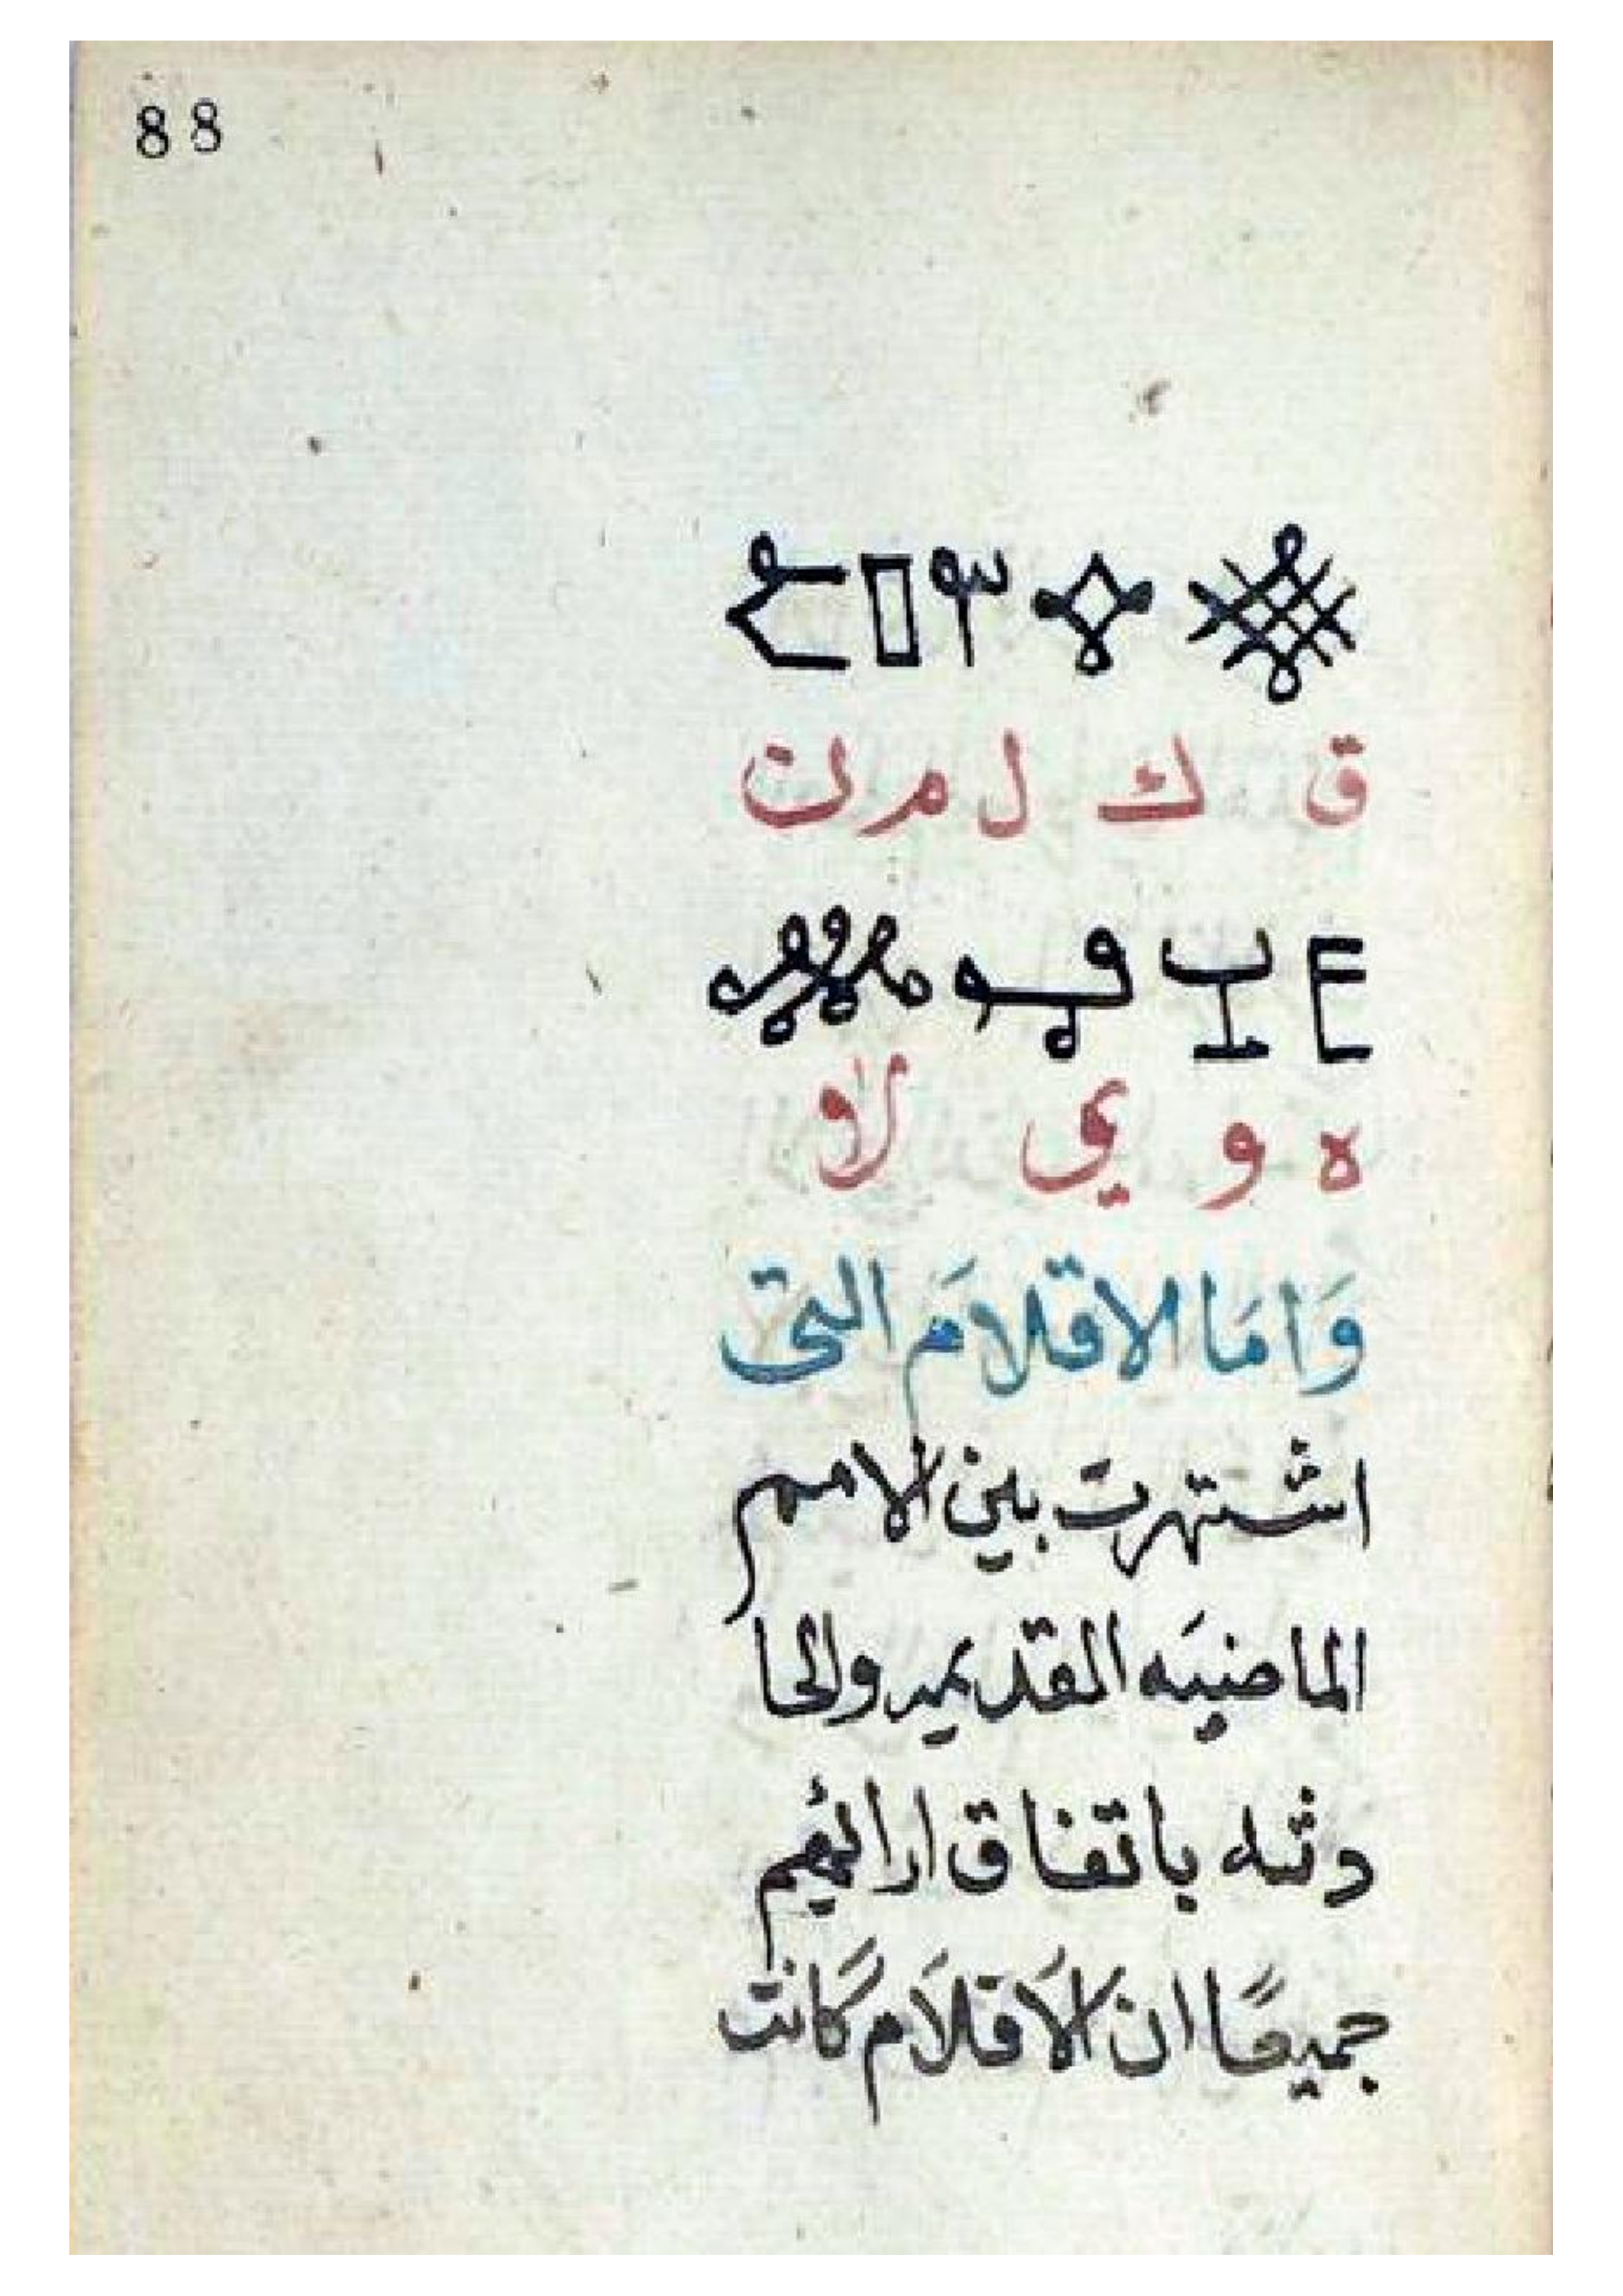 88
ق ك ل م ن
ه و ي لا
وَامَا الاقلامَ التى
اشتهرت بين الامم
الماضيَه القديمه والحا
دثه باتفاق ارائهم
جميعًا ان الاَقلاَم كَانت